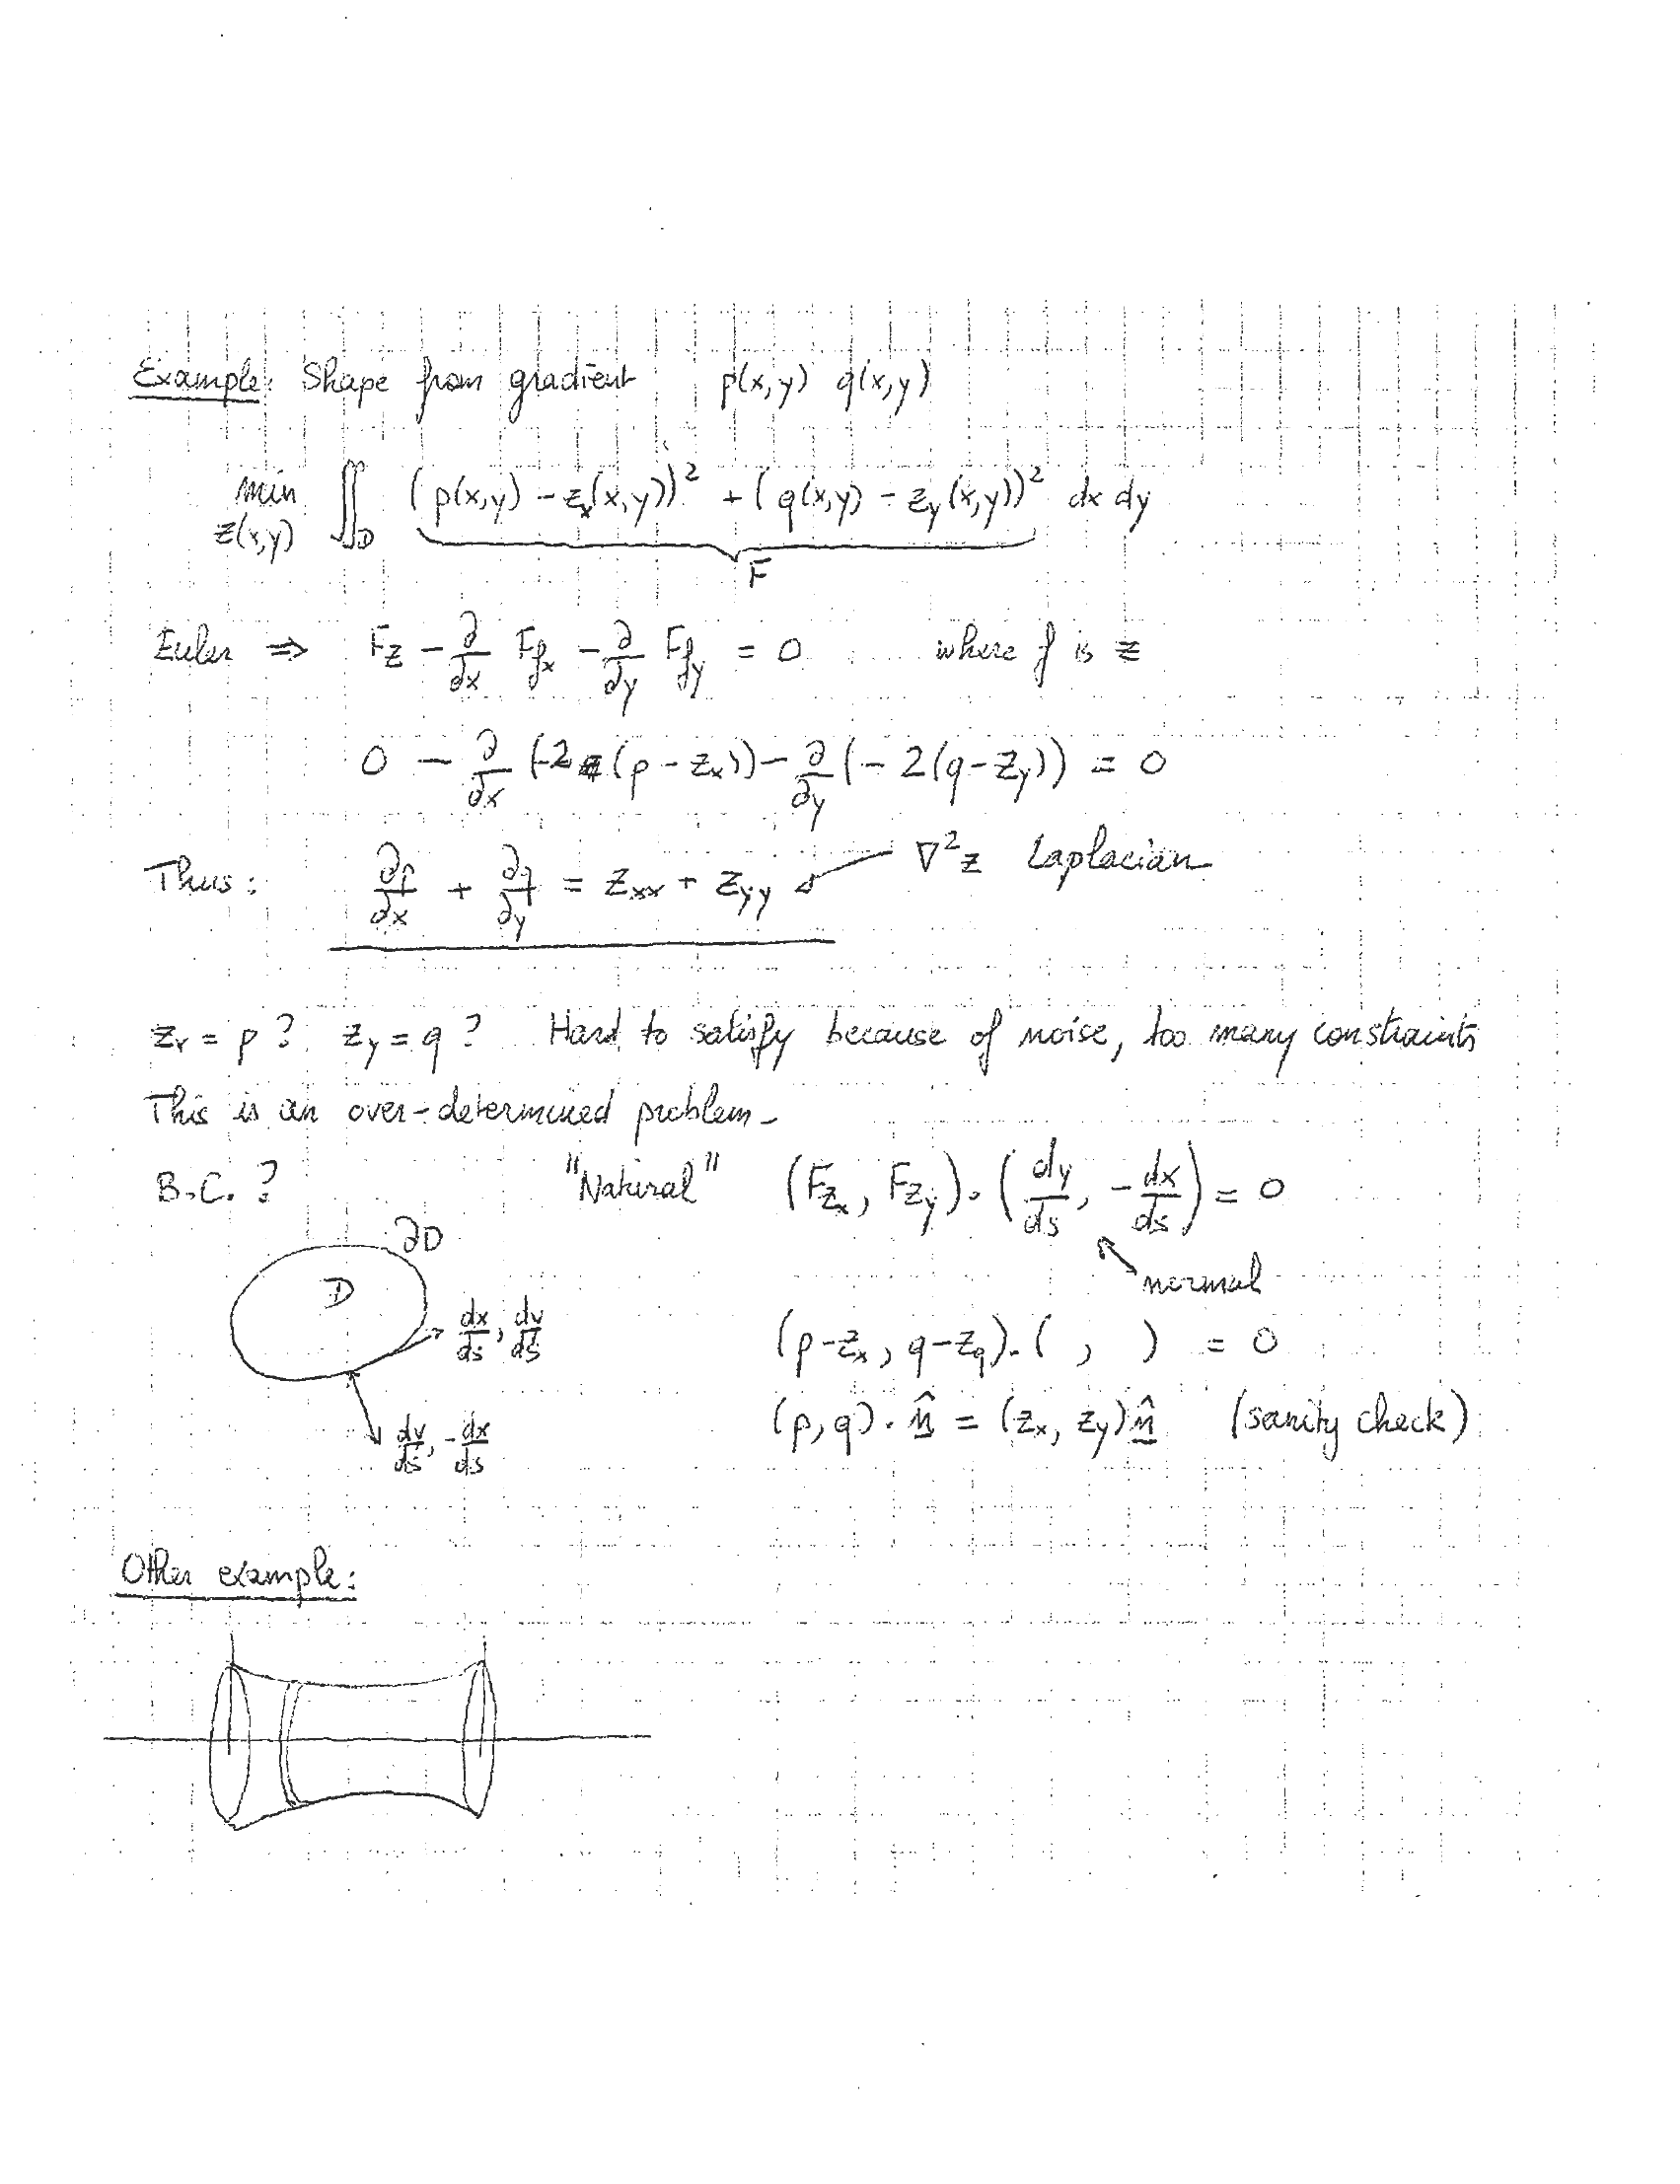 Example: Shape from gradient p(x,y) q(x,y)
min z(x,y) ∬_D (p(x,y) - z_x(x,y))² + (q(x,y) - z_y(x,y))² dx dy
F
Euler ⇒ F_z - ∂/∂x F_{f_x} - ∂/∂y F_{f_y} = 0 where f is z
0 - ∂/∂x (-2(p - z_x)) - ∂/∂y (-2(q - z_y)) = 0
Thus: ∂p/∂x + ∂q/∂y = z_xx + z_yy ∇²z Laplacian
z_x = p? z_y = q? Hard to satisfy because of noise, too many constraints
This is an over-determined problem-
B.C.? "Natural" (F_{z_x}, F_{z_y}) · (dy/ds, -dx/ds) = 0
normal
∂D
D
dx/ds, dy/ds
(p - z_x, q - z_q) · ( , ) = 0
(p, q) · n̂ = (z_x, z_y) n̂ (sanity check)
dy/ds, -dx/ds
Other example: